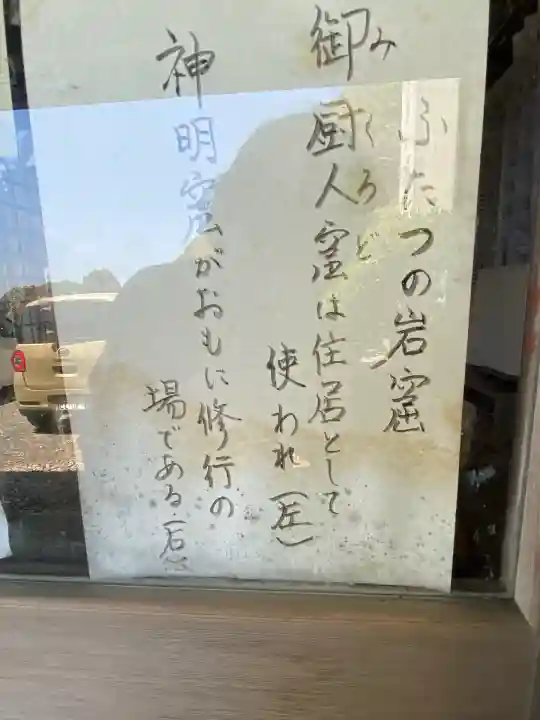 ふたつの岩窟
みくろど
御厨人窟は住居として
使われ(左)
神明窟がおもに修行の
場である(右)